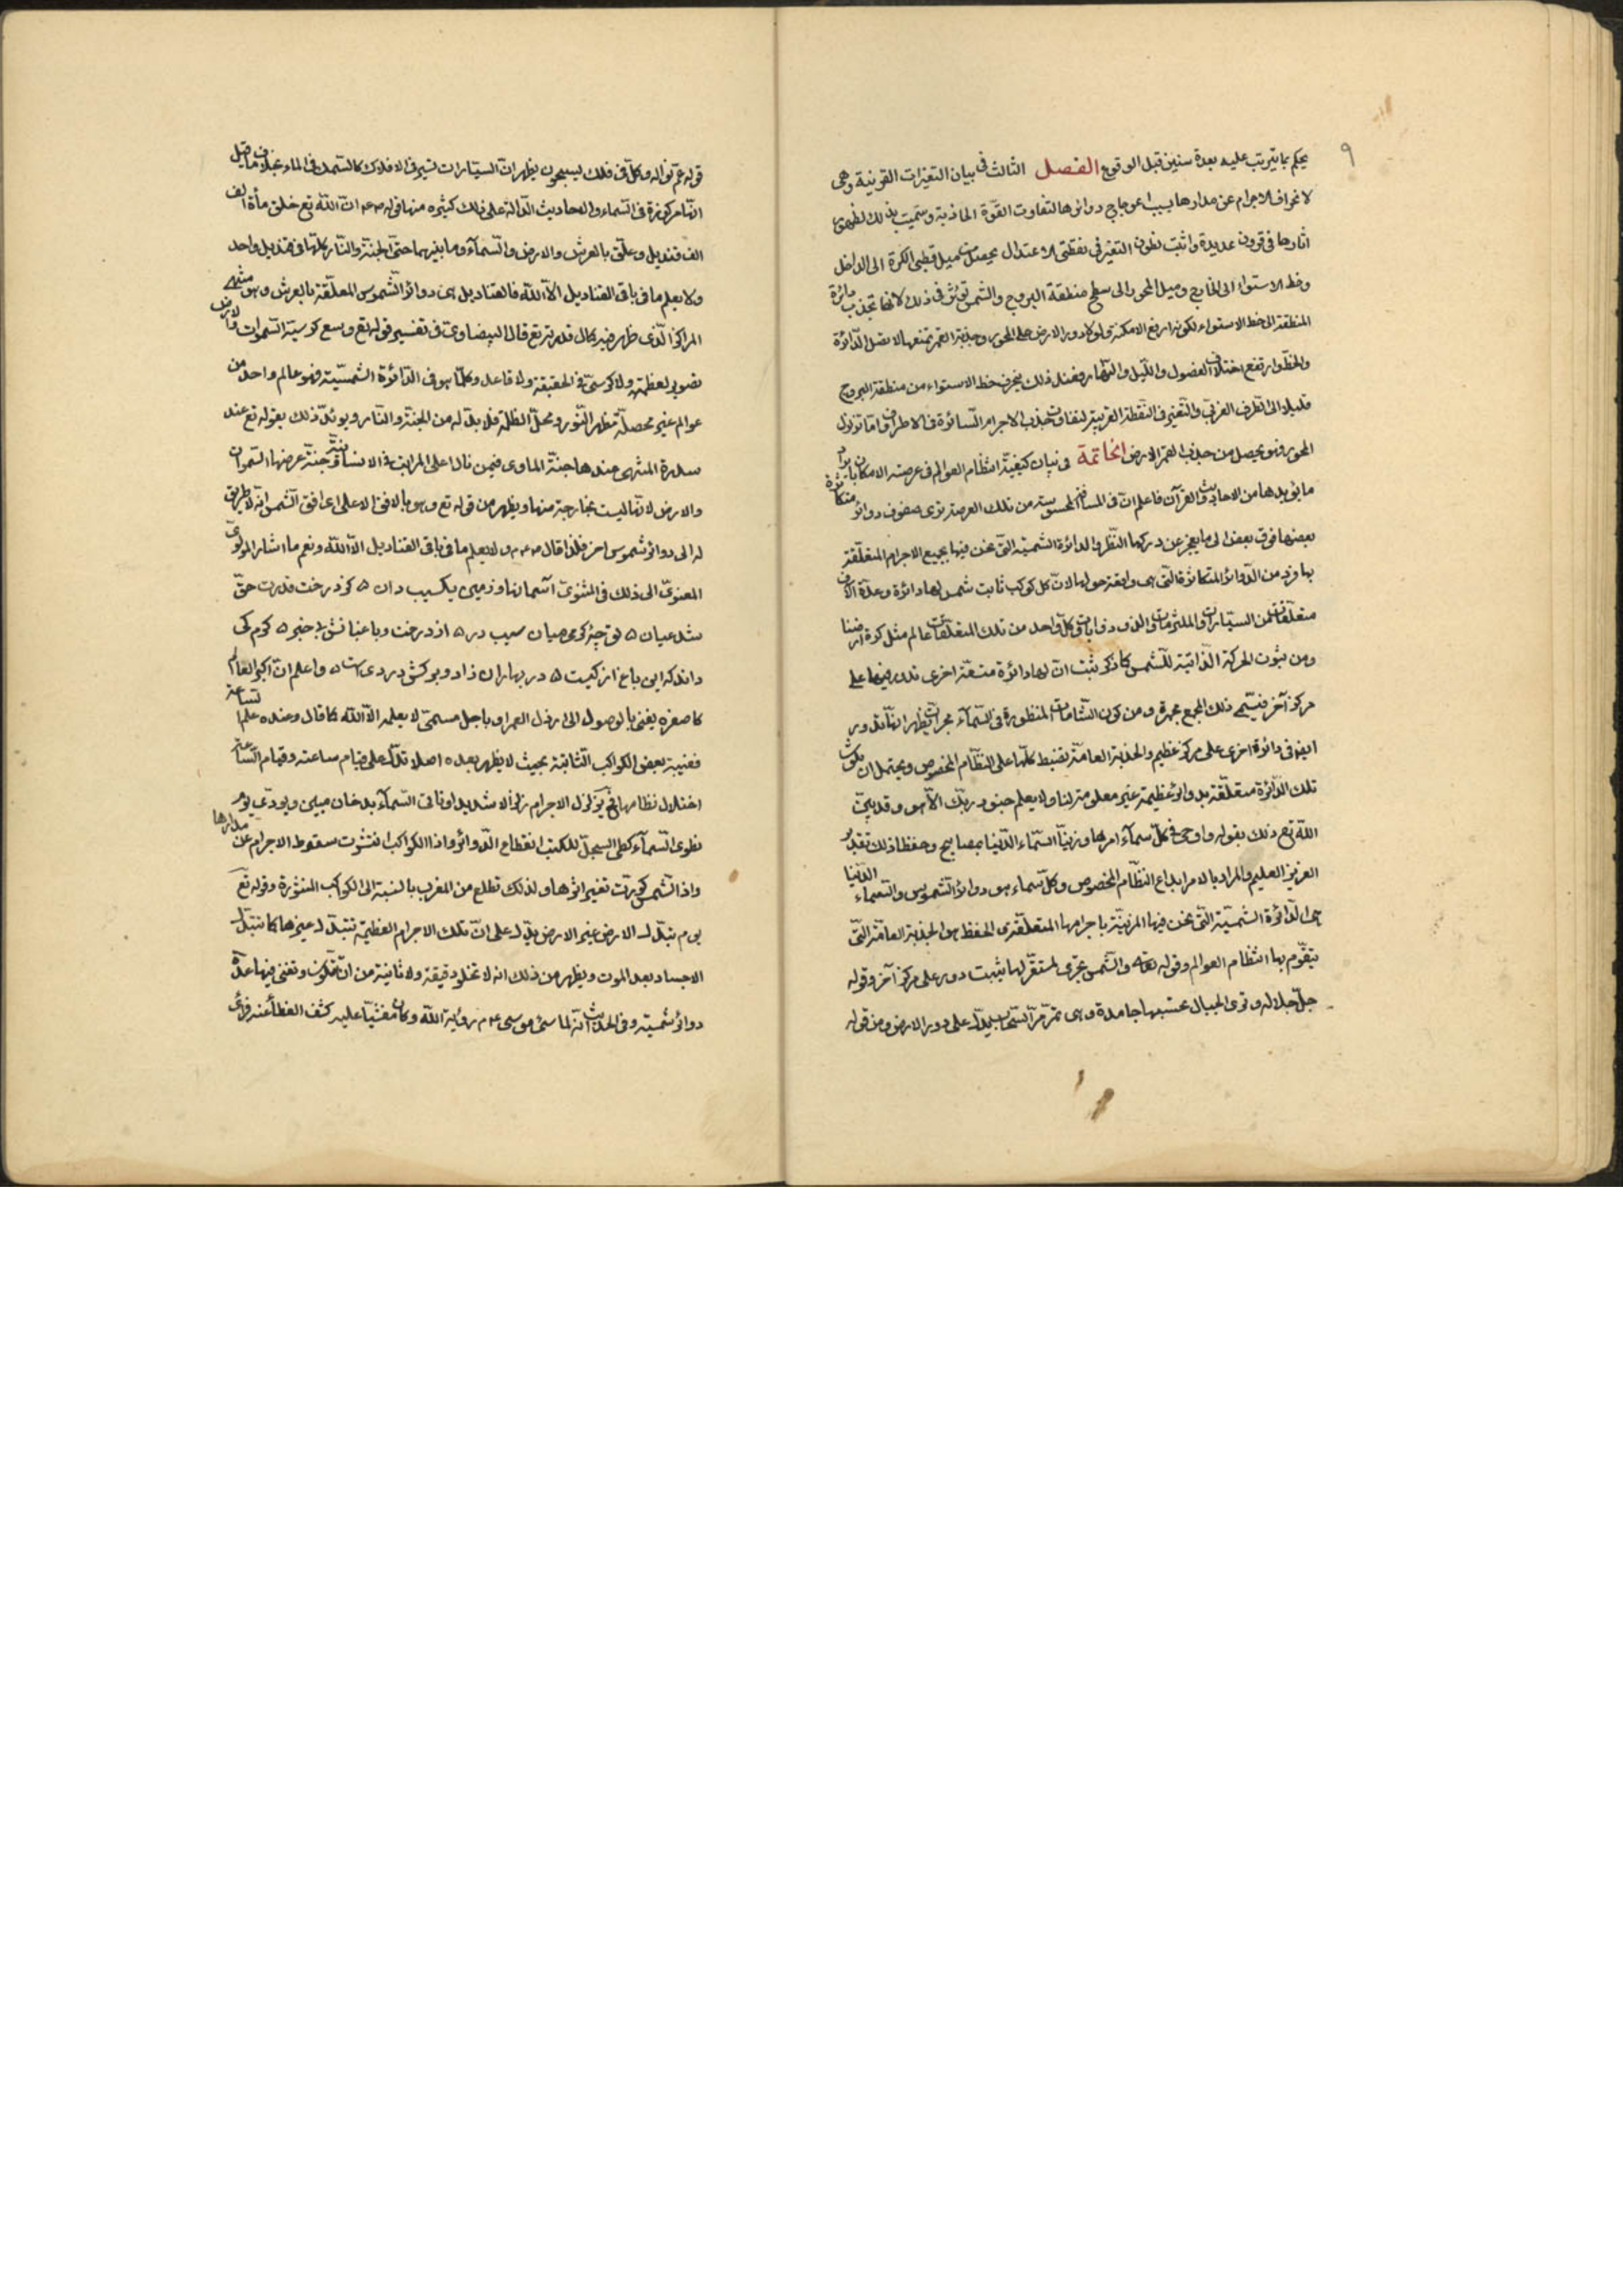 ٩
يحكم بما يترتب عليه بعدة سنين قبل الوقوع الفصل الثالث في بيان التغيرات القرنية وهي
لانحراف الاجرام عن مدارها بسبب اعوجاج دوائرها لتفاوت القوة الجاذبة وسميت بذلك لظهور
اثارها في قرون عديدة واثبت بطون التغير في نقطتي الاعتدال يحصل من ميل قطبي الكرة الى الداخل
وخط الاستواء الى الخارج وميل المحور الى سطح منطقة البروج والشمس تؤثر في ذلك لانها تجذب دائرة
المنطقة الى خط الاستواء لكونه ارفع الامكنة ولولا دور الارض على المحور وجذبة القمر تمنعها لاتصل الدائرة
والخط وارتفع اختلاف الفصول والليل والنهار فعند ذلك ينحرف خط الاستواء من منطقة البروج
قليلا الى الطرف الغربي والتغير في النقطة القريبة لتفاوت جذب الاجرام السائرة في الاطراف اما تزلزل
المحور فهو يحصل من جذب القمر الارض الخاتمة في بيان كيفية انتظام العوالم في عرصة الامكان بايراد
ما يؤيدها من الاحاديث والقرآن فاعلم ان في المسافة المحسوسة من تلك العرصة ترى صفوف دوائر متكاثرة
بعضها فوق بعض الى ما يعجز عن دركها النظر والدائرة الشمسية التي نحن فيها بجميع الاجرام المتعلقة
بها فرد من الدوائر المتكاثرة التي هي واقعة حولها لان كل كوكب ثابت شمس لها دائرة وعدة آلاف
متعلقات من السيارات والملتزمات والذوذوابات وكل واحد من تلك المتعلقات عالم مثل كرة ارضنا
ومن ثبوت الحركة الذاتية للشمس كما ذكر ثبت ان لها دائرة متسعة اخرى تدور فيها على
مركز آخر فيسمى ذلك المجمع بمجرة ومن كون الشامات المنظورة في السماء مجرات يظهر انها تدور
ايضا في دائرة اخرى على مركز عظيم والجذبة العامة تضبط كلها على النظام المخصوص ويحتمل ان تكون
تلك الدائرة متعلقة بدوائر عظيمة غير معلومة لنا ولا يعلم جنود ربك الا هو وقد بين
الله تع ذلك بقوله واوحى في كل سماء امرها وزينا السماء الدنيا بمصابيح وحفظا ذلك تقدير
العزيز العليم والمراد بالامر ابداع النظام المخصوص وكل سماء هو دوائر الشموس والسماء الدنيا
هي الدائرة الشمسية التي نحن فيها المزينة باجرامها المتعلقة والحفظ هو الجذبة العامة التي
يتقوم بها انتظام العوالم وقوله تعالى والشمس تجري لمستقر لها يثبت دور على مركز آخر وقوله
جل جلاله وترى الجبال تحسبها جامدة وهي تمر مر السحاب يدل على دور الارض ومن قوله
قوله عم نواله وكل في فلك يسبحون يظهر ان السيارات تسير في الافلاك كالسمك في الماء بخلاف ما قيل
انها مركوزة في السماء والاحاديث الدالة على ذلك كثيرة منها قوله ان الله تع خلق مأة الف
الف قنديل وعلق بالعرش والارض والسماء وما بينهما حتى الجنة والنار كلها في قنديل واحد
ولا يعلم ما في باقي القناديل الا الله فالقناديل هي دوائر الشموس المعلقة بالعرش وهو منتهى
المراكز الذي ظهر فيه كمال قدرته تع قال البيضاوي في تفسير قوله تع وسع كرسيه السموات والارض
تصوير لعظمته ولا كرسي في الحقيقة ولا قاعد وكلما هو في الدائرة الشمسية فهو عالم واحد من
عوالم غير محصلة مظهر النور ومحل الظلمة فلا بد له من الجنة والنار ويؤيد ذلك بقوله تع عند
سدرة المنتهى عندها جنة الماوى فيمن نال اعلى المراتب في الانسانية وجنة عرضها السموات
والارض لانها ليست بخارجة منها ويظهر من قوله تع وهو بالافق الاعلى اي افق الشمس انه لا طريق
له الى دوائر شموس اخر فلذا قال ولا يعلم ما في باقي القناديل الا الله ونعم ما اشار المولوي
المعنوي الى ذلك في المثنوي آسمانها وزمين يكسيب دان ٥ كز درخت قدرت حق
شد عيان ٥ تو چه كرمى ميان سيب در ٥ از درخت وباغبانش بي خبر ٥ كرم كى
داند كه اين باغ از كيست ٥ در بهاران زاد ومركش در دى ست ٥ واعلم ان اكبر العالم
كاصغره يفنى بالوصول الى ارذل العمر او باجل مسمى لا يعلمه الا الله كما قال وعنده علم الساعة
فغيبة بعض الكواكب الثابتة بحيث لا يظهر بعده اصلا تدل على قيام ساعته وقيام الساعة
اختلال نظامها تزلزل الاجرام زلزالا شديدا وتاتي السماء بدخان مبين ويؤدي يوم
نطوي السماء كطي السجل للكتب انقطاع الدوائر واذا الكواكب انتثرت سقوط الاجرام عن مدارها
واذا الشمس كورت تغير اثرها ولذلك تطلع من المغرب بالنسبة الى الكواكب المنثورة وقوله تع
يوم تبدل الارض غير الارض يدل على ان تلك الاجرام العظيمة تتبدل غيرها كما تتبدل
الاجساد بعد الموت ويظهر من ذلك انه لا تخلو دقيقة ولا ثانية من ان تكون وتفنى فيها عدة
دوائر شمسية وفي الحديث انه لما سئل موسى رؤية الله وكان مغشيا عليه كشف الغطاء عنه فرأى